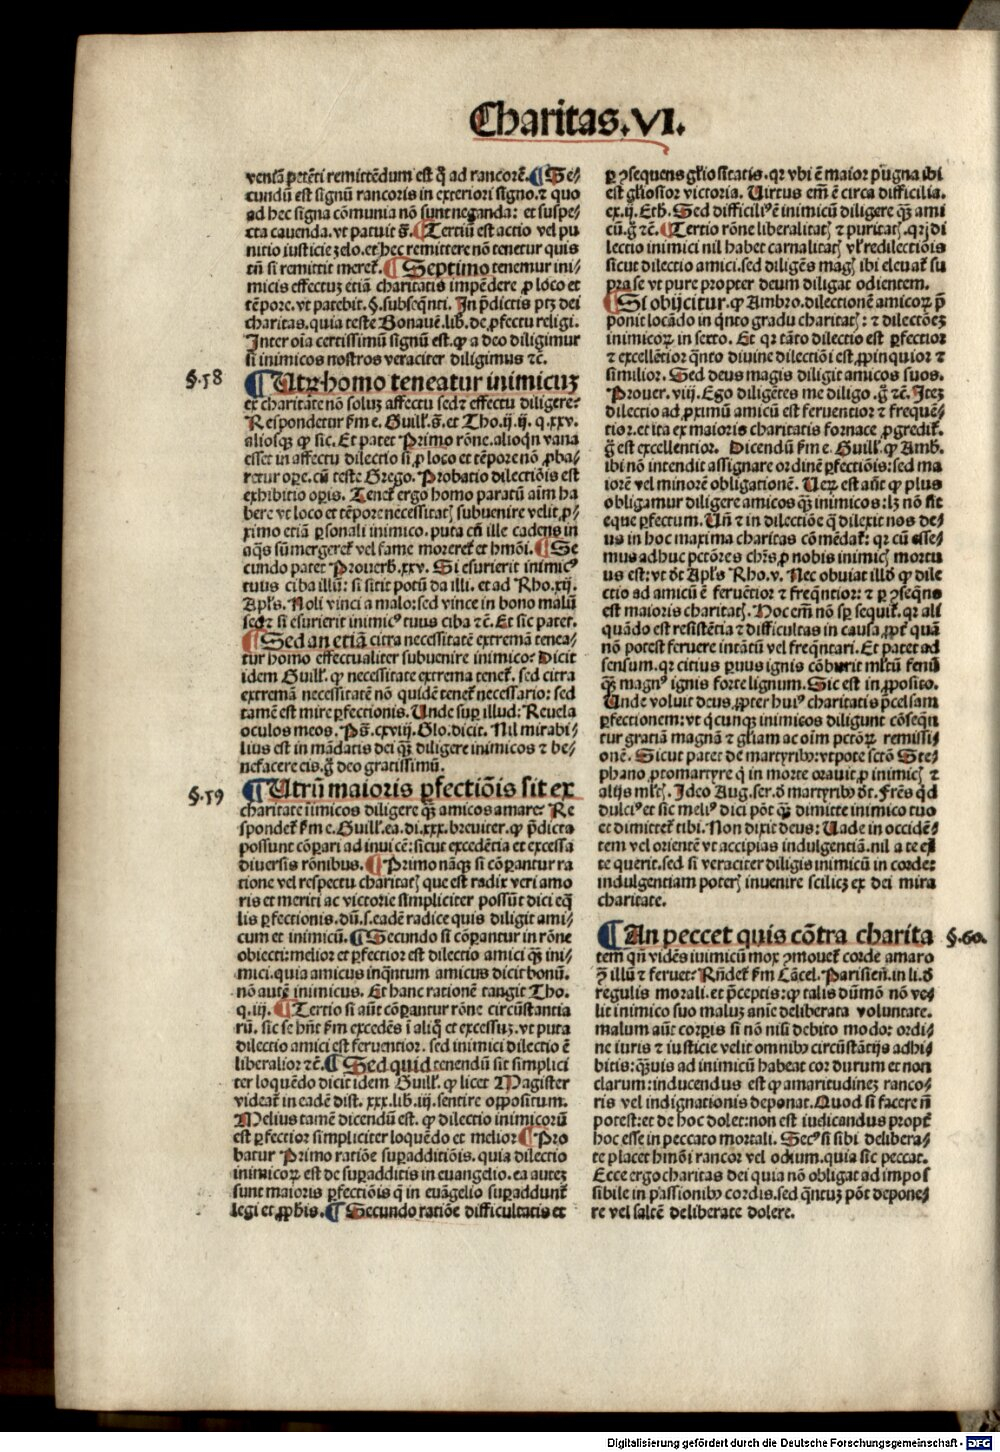 Charitas.VI.
veniā petēti remittēdum est q̄ ad rancorē. ¶ Se/
cundū est signū rancoris in exteriori signo. ⁊ quo
ad hec signa cōmunia nō sunt neganda: et suspe/
cta cauenda. vt patuit s̄. ¶ Tertiū est actio vel pu
nitio iusticie zelo. et hec remittere nō tenetur quis
tn̄ si remittit meret̄. ¶ Septimo tenemur ini/
micis effectuz etiā charitatis impēdere ꝓ loco et
tēpore. vt patebit. §. subseqn̄ti. In p̄dictis ptꝫ dei
charitas. quia teste Bonauē. lib. de ꝓfectu religi.
Inter oīa certissimū signū est. ꝙ a deo diligimur
si inimicos nostros veraciter diligimus ⁊c̄.
§.58
¶ Utꝝ homo teneatur inimicuꝫ
ex charitate nō soluꝫ affectu sedꝫ effectu diligere:
Respondetur ẜm e. Guill̄. s̄. et Tho. ij. ij. q. xxv.
aliosqꝫ ꝙ sic. Et patet Primo rōne. alioqn̄ vana
esset in affectu dilectio si ꝓ loco et tēpore nō ꝓba/
retur oꝑe. cū teste Grego. Probatio dilectiōis est
exhibitio oꝑis. Tenet̄ ergo homo paratū aīm ha
bere vt loco et tēpore necessitatꝭ subuenire velit ꝓ/
ximo etiā ꝑsonali inimico. puta cū ille cadens in
aq̄s sūmergeret̄ vel fame moreret̄ et hmōi. ¶ Se
cundo patet Prouerb. xxv. Si esurierit inimicꝰ
tuus ciba illū: si sitit potū da illi. et ad Rho. xij.
Apl̄s. Noli vinci a malo: sed vince in bono malū
sedꝫ si esurierit inimicꝰ tuus ciba ⁊c̄. Et sic patet.
¶ Sed an etiā citra necessitatē extremā tenea/
tur homo effectualiter subuenire inimico: Dicit
idem Guill̄. ꝙ necessitate extrema tenet̄. sed citra
extremā necessitatē nō quidē tenet̄ necessario: sed
tamē est mire ꝑfectionis. Unde suꝑ illud: Reuela
oculos meos. Ps̄. cxviij. Glo. dicit. Nil mirabi/
lius est in mādatis dei qꝫ diligere inimicos ⁊ be/
nefacere eis. g̊ deo gratissimū.
§.59
¶ Utrū maioris ꝑfectiōis sit ex
charitate inimicos diligere qꝫ amicos amare: Re
spondet̄ ẜm e. Guill̄. ea. di. xxx. breuiter. ꝙ p̄dicta
possunt cōꝑari ad inuicē: sicut excedētia et excessa
diuersis rōnibus. ¶ Primo nāqꝫ si cōꝑantur ra
tione vel respectu charitatꝭ que est radix veri amo
ris et meriti ac victorie simpliciter possūt dici eq̄
lis ꝑfectionis. dū. s. eadē radice quis diligit ami/
cum et inimicū. ¶ Secundo si cōꝑantur in rōne
obiecti: melior et ꝑfectior est dilectio amici qꝫ ini/
mici. quia amicus inqn̄tum amicus dicit bonū.
nō autē inimicus. Et hanc rationē tangit Tho.
q. iij. ¶ Tertio si aūt cōꝑantur rōne circūstantia
rū. sic se hn̄t ẜm excedēs ī aliq̊ et excessuꝫ. vt puta
dilectio amici est feruentior. sed inimici dilectio ē
liberalior ⁊c̄. ¶ Sed quid tenendū sit simplici
ter loquēdo dicit idem Guill̄. ꝙ licet Magister
videat̄ in eadē dist. xxx. lib. iij. sentire oppositum.
Melius tamē dicendū est. ꝙ dilectio inimicorū
est ꝑfectior simpliciter loquēdo et melior ¶ Pro
batur Primo ratiōe suꝑadditiōis. quia dilectio
inimicoꝝ est de suꝑadditis in euangelio. ea autez
sunt maioris ꝑfectiōis q̄ in euāgelio suꝑaddunt̄
legi et ꝓphis. ¶ Secundo ratiōe difficultatis et
ꝑ ꝯsequens gl̄iositatis. qꝛ vbi ē maior pugna ibi
est gl̄iosior victoria. Uirtus em̄ ē circa difficilia.
ex. ij. Eth. Sed difficiliꝰ ē inimicū diligere qꝫ ami
cū. g̊ ⁊c̄. ¶ Tertio rōne liberalitatꝭ ⁊ puritatꝭ. qꝛ di
lectio inimici nil habet carnalitatꝭ vl̓ redilectiōis
sicut dilectio amici. sed diligēs magꝭ ibi eleuat̄ su
pra se vt pure propter deum diligat odientem.
¶ Si obijcitur. ꝙ Ambro. dilectionē amicoꝝ p̄
ponit locādo in q̄nto gradu charitatꝭ: ⁊ dilectōeꝫ
inimicoꝝ in sexto. Et qꝛ tāto dilectio est ꝑfectior
⁊ excellētior q̄nto diuine dilectiōi est ꝓpinquior ⁊
similior. Sed deus magis diligit amicos suos.
Prouer. viij. Ego diligētes me diligo. g̊ ⁊c̄. Iteꝫ
dilectio ad ꝓximū amicū est feruentior ⁊ frequē/
tior. et ita ex maioris charitatis fornace ꝓgredit̄.
g̊ est excellentior. Dicendū ẜm e. Guill̄. ꝙ Amb̄.
ibi nō intendit assignare ordinē ꝑfectiōis: sed ma
iorē vel minorē obligationē. Ueꝝ est aūt ꝙ plus
obligamur diligere amicos qꝫ inimicos: lꝫ nō sit
eque ꝑfectum. Un̄ ⁊ in dilectiōe q̄ dilexit nos de/
us in hoc maxima charitas cōmēdat̄: qꝛ cū esse/
mus adhuc pctōres chr̄s ꝓ nobis inimicꝭ mortu
us est: vt dt̄ Apl̄s Rho. v. Nec obuiat illd̓ ꝙ dile
ctio ad amicū ē feruētior ⁊ freq̄ntior: ⁊ ꝑ ꝯseq̄ns
est maioris charitatꝭ. Hoc em̄ nō sꝑ sequit̄. qꝛ ali
quādo est resistētia ⁊ difficultas in causa ꝓpt̄ quā
nō potest feruere intātū vel freq̄ntari. Et patet ad
sensum. qꝛ citius paruus ignis cōburit ml̄tū fenū
qꝫ magnꝰ ignis forte lignum. Sic est in ꝓposito.
Unde voluit deus ꝓpter huiꝰ charitatis p̄celsam
ꝑfectionem: vt q̄cunqꝫ inimicos diligunt cōseqn̄
tur gratiā magnā ⁊ gl̄iam ac oīm pctōꝝ remissi/
onē. Sicut patet de martyribꝰ: vtpote sctō Ste/
phano ꝓtomartyre q̄ in morte orauit ꝓ inimicꝭ ⁊
alijs ml̄tꝭ. Ideo Aug. ser. d̓ martyribꝰ dt̄. Fr̄es qd̓
dulciꝰ et sic meliꝰ dici pōt qꝫ dimitte inimico tuo
et dimittet̄ tibi. Non dixit deus: Uade in occidē/
tem vel orientē vt accipias indulgentiā. nil a te ex
te querit. sed si veraciter diligis inimicū in corde:
indulgentiam poterꝭ inuenire scilicꝫ ex dei mira
charitate.
§.60.
¶ An peccet quis cōtra charita
tem qn̄ vidēs inimicū mox ꝯmouet̄ corde amaro
ꝯ̄ illū ⁊ feruet: Rn̄det̄ ẜm Cācel. Parisien̄. in li. d̓
regulis morali. et p̄ceptis: ꝙ talis dūmō nō ve/
lit inimico suo maluꝫ aīe deliberata voluntate.
malum aūt corꝑis si nō nisi debito modo: ordi/
ne iuris ⁊ iusticie velit omnibꝰ circūstātijs adhi/
bitis: qꝫuis ad inimicū habeat cor durum et non
clarum: inducendus est ꝙ amaritudineꝫ ranco/
ris vel indignationis deponat. Quod si facere nō
potest: et de hoc dolet: non est iudicandus propt̄
hoc esse in peccato mortali. Secꝰ si sibi delibera/
te placet hmōi rancor vel odium. quia sic peccat.
Ecce ergo charitas dei quia nō obligat ad impos
sibile in passionibꝰ cordis. sed q̄ntuꝫ pōt depone/
re vel saltē deliberate dolere.
Digitalisierung gefördert durch die Deutsche Forschungsgemeinschaft - DFG